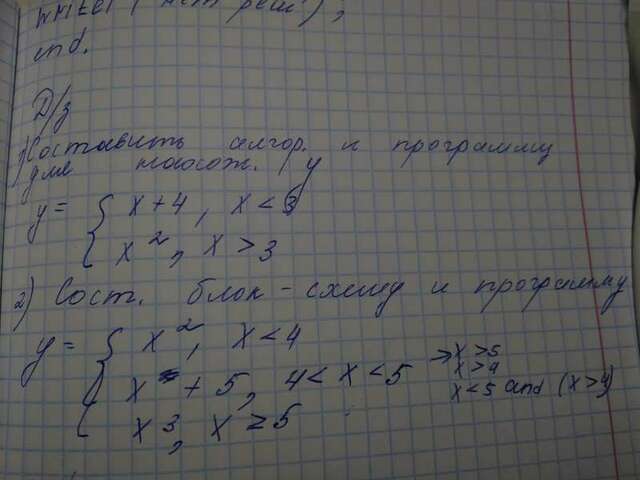 writel ("нет реш");
end.
Д/з
1) Составить алгор. и программу
для нахож. y
y = { x + 4, x < 3
x², x > 3
2) Сост. блок-схему и программу
y = { x², x < 4
x + 5, 4 < x < 5
x³, x ≥ 5
→ x > 5
x > 4
x < 5 and (x > 4)